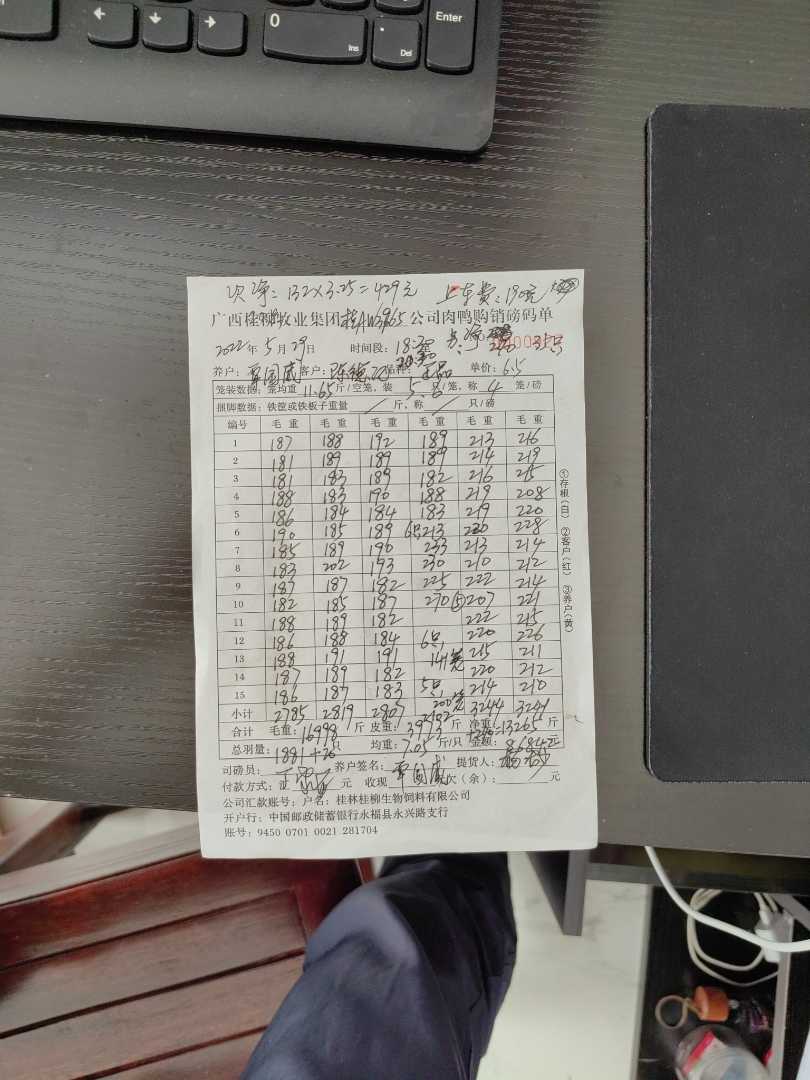 Enter
0
Ins
.
Del
次净: 132×3.25=429元 上车费: 190元
广西桂柳牧业集团桂AW3965公司肉鸭购销磅码单
2022年5月29日 时间段: 18:30
养户: 覃国威 客户: 陈德 品种: 正品 单价: 6.5
笼装数据: 笼均重 11.65 斤/空笼, 装 5.6 只/笼, 称 4 笼/磅
捆脚数据: 铁筐或铁板子重量 / 斤, 称 / 只/磅
编号 毛重 毛重 毛重 毛重 毛重 毛重
1 187 188 192 189 213 216
2 181 189 189 189 214 219
3 181 183 189 182 216 215
4 188 183 190 188 219 208
5 186 184 184 183 219 220
6 190 185 189 6只213 220 228
7 185 189 190 233 213 214
8 183 202 193 230 210 212
9 187 187 182 225 222 214
10 182 185 187 270 ⑤207 221
11 188 189 182 222 215
12 186 188 184 6只 220 226
13 188 191 191 141笼 215 211
14 187 189 182 220 212
15 186 187 183 5只 214 210
200笼
小计 2785 2819 2807 2102 3244 3241
合计 毛重: 16998 斤 皮重: 3973 斤 净重: 13265 斤
总羽量: 1881+26 只 均重: 7.05 斤/只 金额: 元
司磅员: 养户签名: 覃国威 提货人:
付款方式: 元 收现 欠(余): 元
公司汇款账号: 户名: 桂林桂柳生物饲料有限公司
开户行: 中国邮政储蓄银行永福县永兴路支行
账号: 9450 0701 0021 281704
①存根(白) ②客户(红) ③养户(黄)